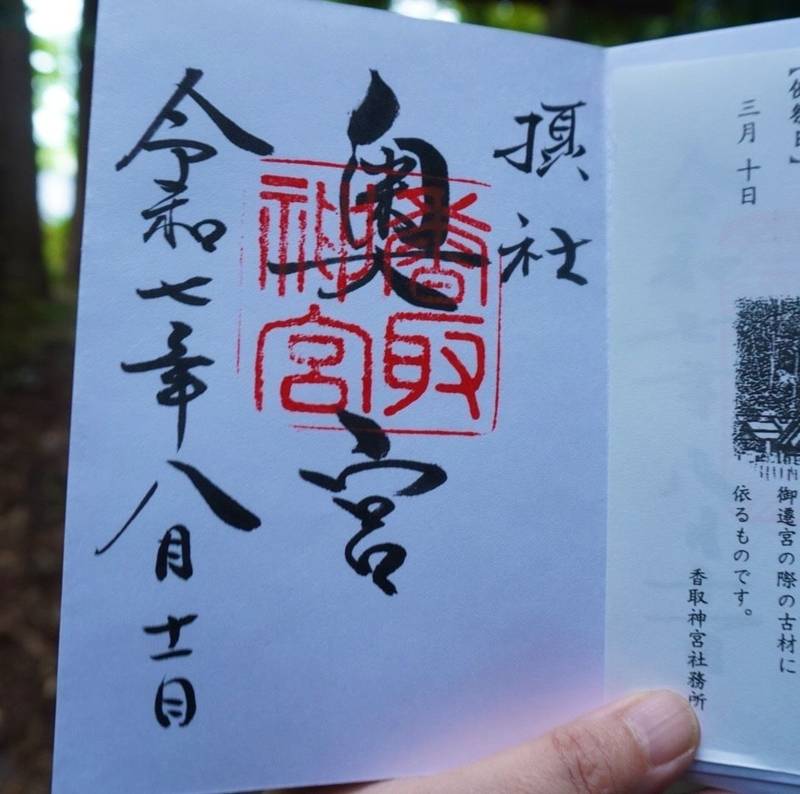 三月十日
御遷宮の際の古材に
依るものです。
香取神宮社務所
摂社
奥宮
香取
神宮
令和七年八月十一日